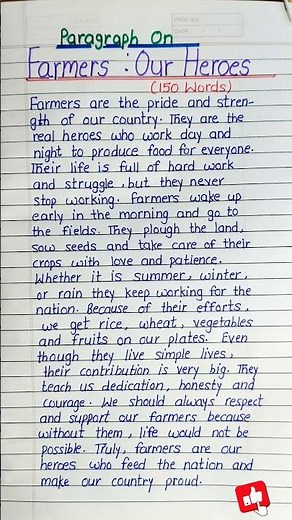 Paragraph On
Farmers : Our Heroes
(150 Words)
Farmers are the pride and stren-
gth of our country. They are the
real heroes who work day and
night to produce food for everyone.
Their life is full of hard work
and struggle, but they never
stop working. Farmers wake up
early in the morning and go to
the fields. They plough the land,
sow seeds and take care of their
crops with love and patience.
Whether it is summer, winter,
or rain they keep working for the
nation. Because of their efforts,
we get rice, wheat, vegetables
and fruits on our plates. Even
though they live simple lives,
their contribution is very big. They
teach us dedication, honesty and
courage. We should always respect
and support our farmers because
without them, life would not be
possible. Truly, farmers are our
heroes who feed the nation and
make our country proud.